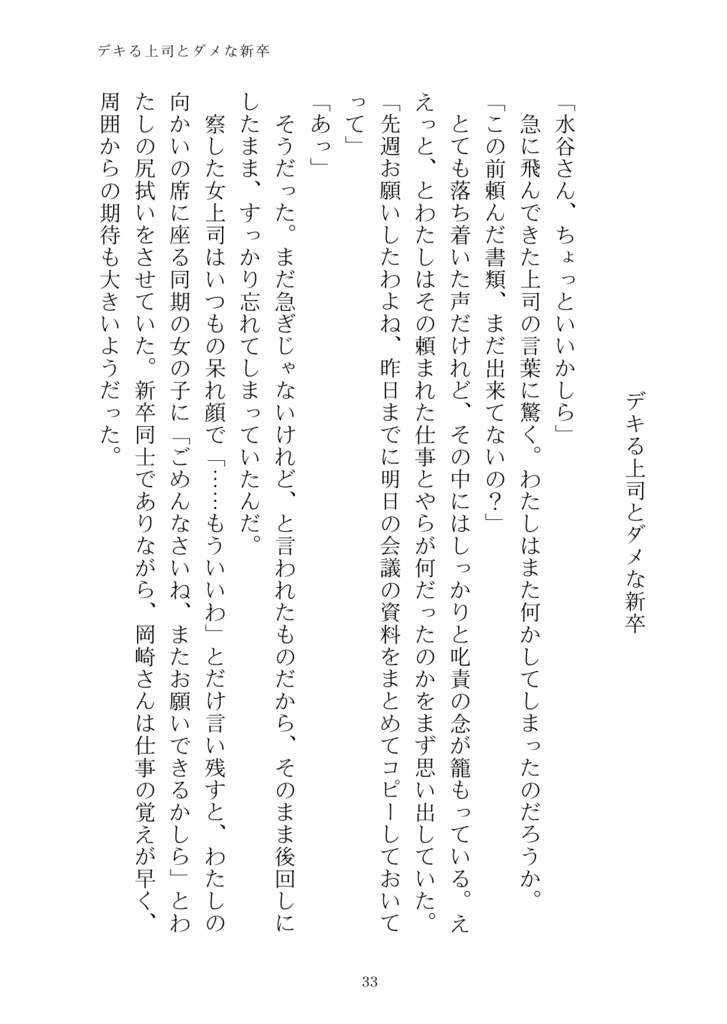 デキる上司とダメな新卒
デキる上司とダメな新卒
「水谷さん、ちょっといいかしら」
急に飛んできた上司の言葉に驚く。わたしはまた何かしてしまったのだろうか。
「この前頼んだ書類、まだ出来てないの？」
とても落ち着いた声だけれど、その中にはしっかりと叱責の念が籠もっている。え
えっと、とわたしはその頼まれた仕事とやらが何だったのかをまず思い出していた。
「先週お願いしたわよね、昨日までに明日の会議の資料をまとめてコピーしておいて
って」
「あっ」
そうだった。まだ急ぎじゃないけれど、と言われたものだから、そのまま後回しに
したまま、すっかり忘れてしまっていたんだ。
察した女上司はいつもの呆れ顔で「……もういいわ」とだけ言い残すと、わたしの
向かいの席に座る同期の女の子に「ごめんなさいね、またお願いできるかしら」とわ
たしの尻拭いをさせていた。新卒同士でありながら、岡崎さんは仕事の覚えが早く、
周囲からの期待も大きいようだった。
33